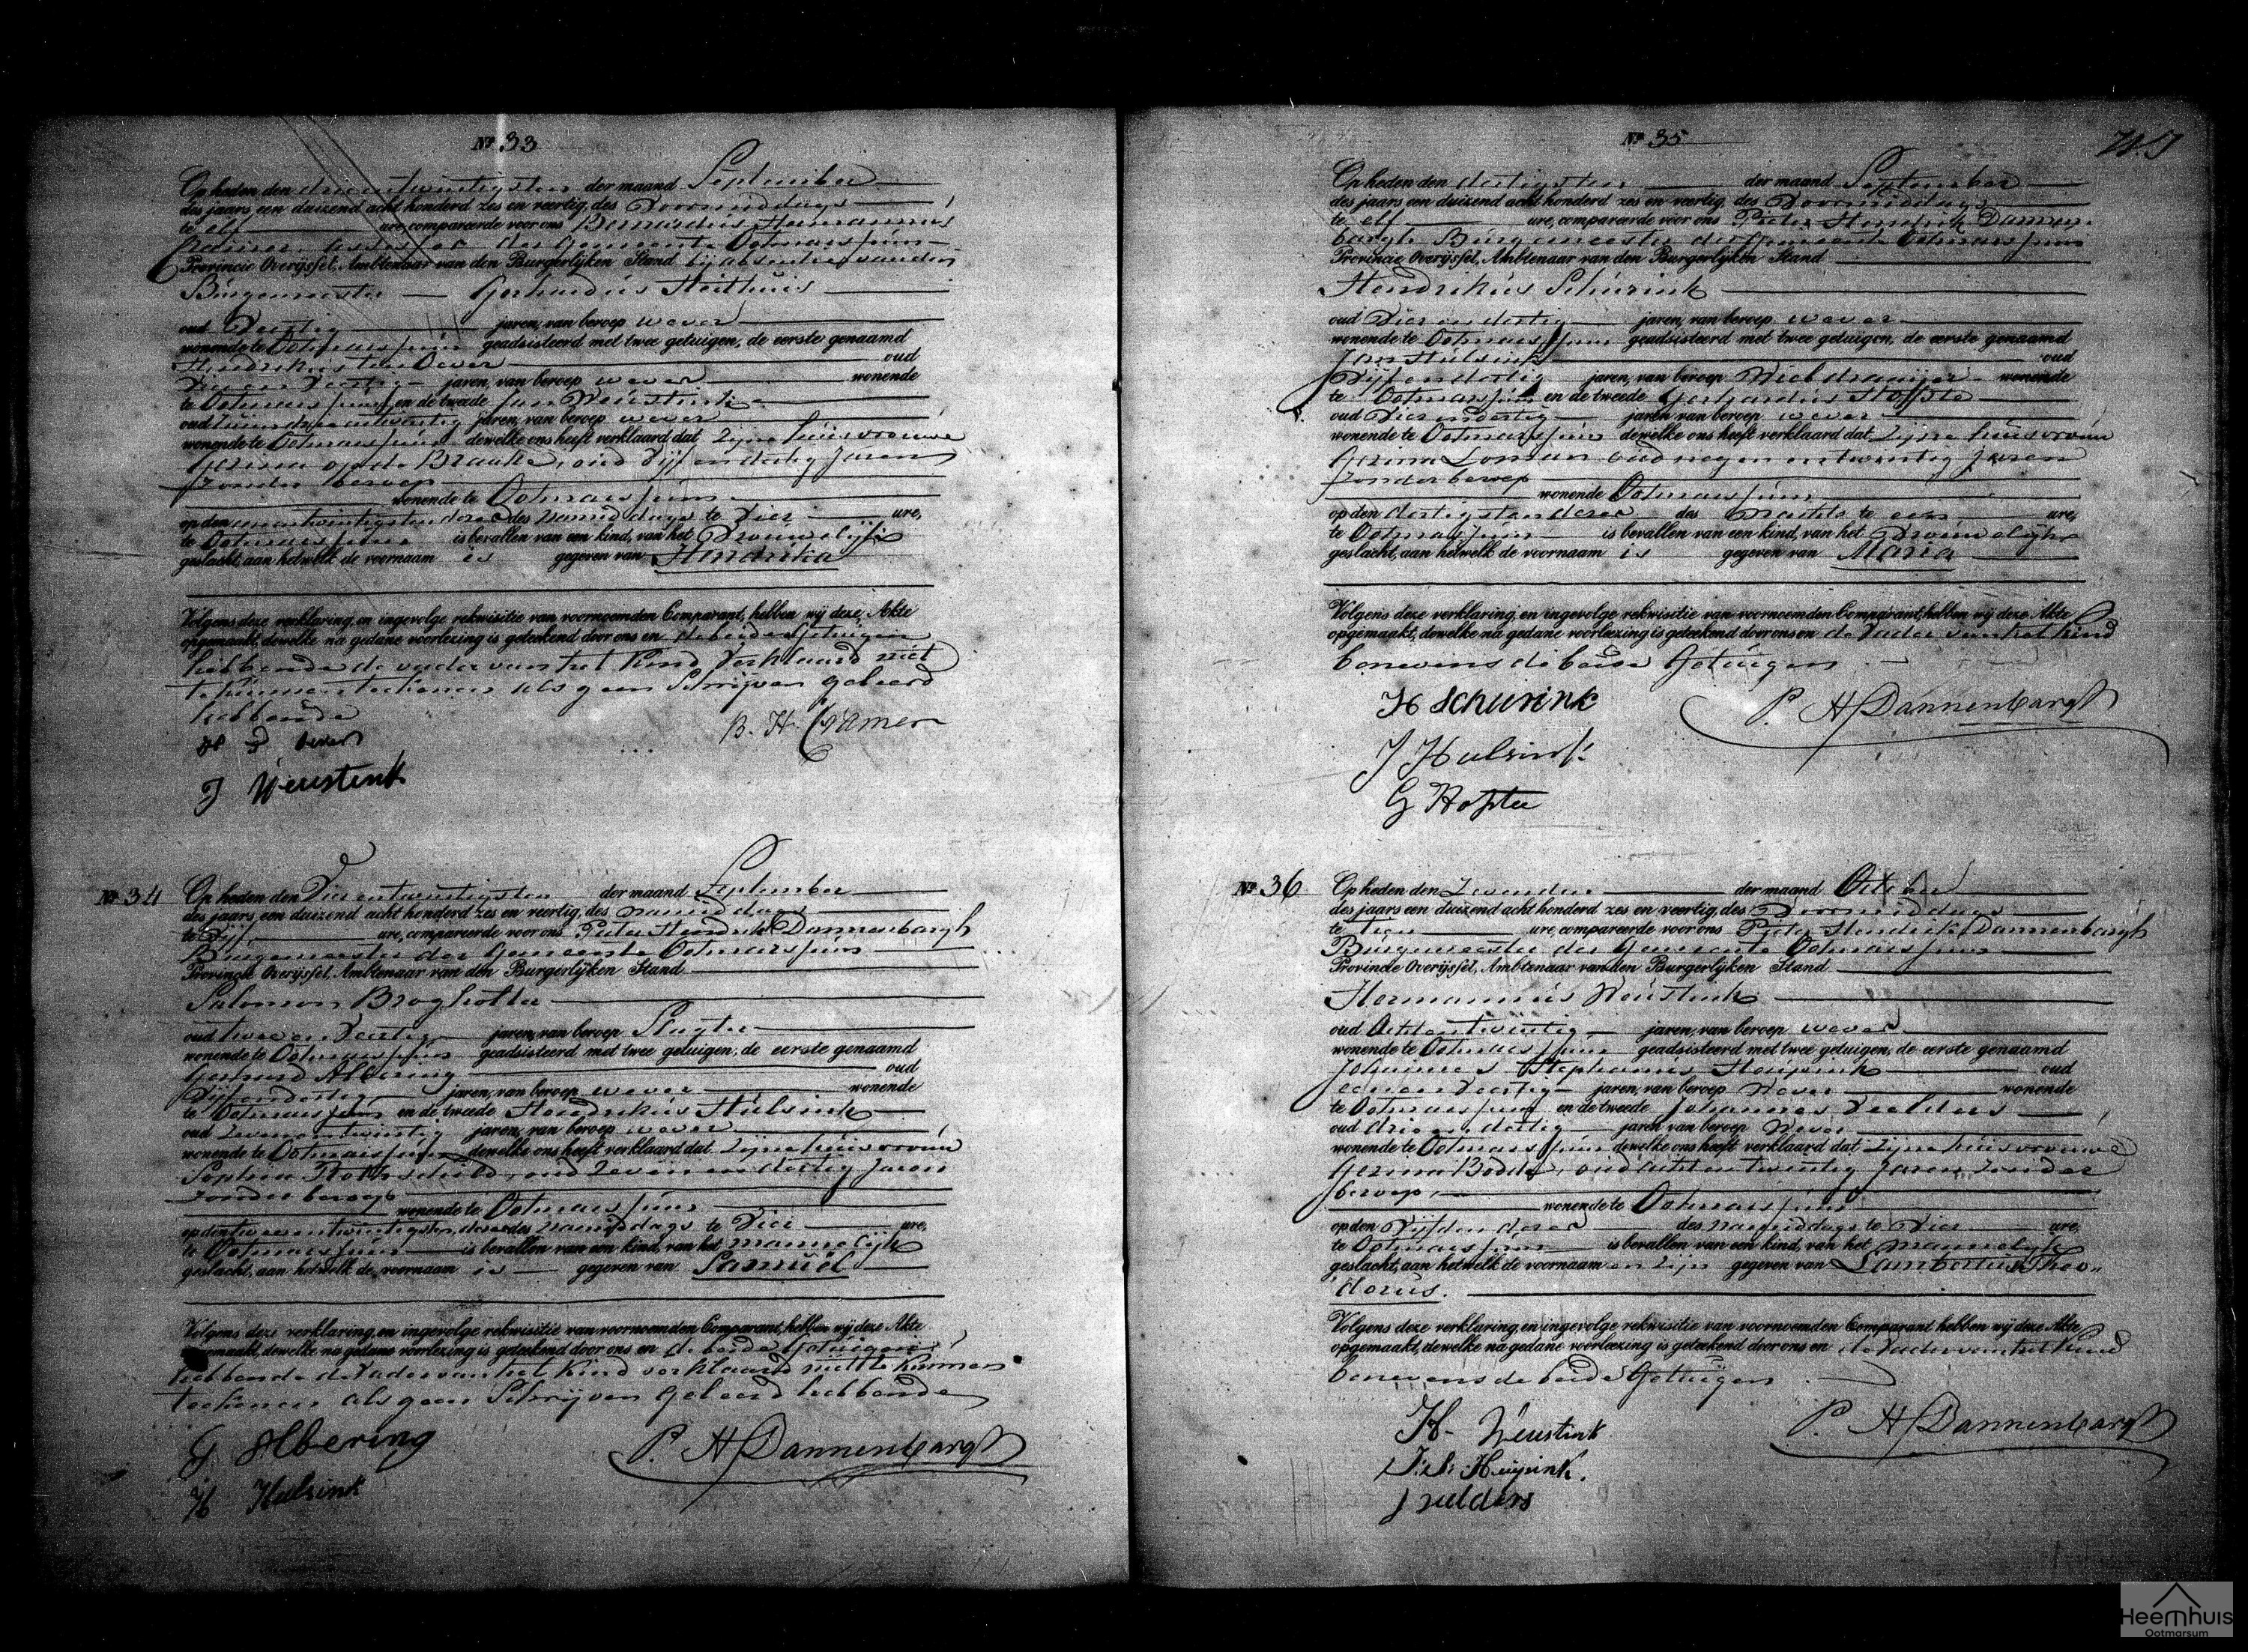 Nº 33
Op heden den drieentwintigsten der maand September
des jaars een duizend acht honderd zes en veertig, des Voormiddags
te elf ure, compareerde voor ons Bernardus Hermannus
Cramer assessor der Gemeente Ootmarssum
Provincie Overijssel, Ambtenaar van den Burgerlijken Stand bij absentie van den
Burgemeester Gerhardus
oud Veertig jaren, van beroep wever
wonende te Ootmarssum geadsisteerd met twee getuigen, de eerste genaamd
Hendrikus ten Oever oud
en Veertig jaren, van beroep wever wonende
te Ootmarssum en de tweede Jan Weustink
oud jaren, van beroep wever
wonende te Ootmarssum dewelke ons heeft verklaard dat zijne huisvrouwe
Gezina op de Braakke, oud Vijf en dertig Jaren
zonder beroep
wonende te Ootmarssum
op den eenentwintigsten dezer des namiddags te Vier ure,
te Ootmarssum is bevallen van een kind, van het Vrouwelijk
geslacht, aan hetwelk de voornaam is gegeven van Hendrika
Volgens deze verklaring, en ingevolge rekwisitie van voornoemden Comparant, hebben wij deze Akte
opgemaakt, dewelke na gedane voorlezing is geteekend door ons en de beide Getuigen
hebbende de vader van het Kind Verklaard niet
te kunnen teekenen als geen Schrijven geleerd
hebbende
B. H. Cramer
H T Oever
J Weustink
Nº 34
Op heden den Vierentwintigsten der maand September
des jaars een duizend acht honderd zes en veertig, des namiddags
te Vijf ure, compareerde voor ons Pieter Hendrik Dannenbargh
Burgemeester der Gemeente Ootmarssum
Provincie Overijssel, Ambtenaar van den Burgerlijken Stand
Salomon Brogholter
oud twee en Veertig jaren, van beroep Slagter
wonende te Ootmarssum geadsisteerd met twee getuigen, de eerste genaamd
Gerhard Albering oud
Vijfendertig jaren, van beroep wever wonende
te Ootmarssum en de tweede Hendrikus Hulsink
oud Zevenentwintig jaren, van beroep wever
wonende te Ootmarssum dewelke ons heeft verklaard dat zijne huisvrouw
Sophia Rothschild, oud Zeven en dertig Jaren
zonder beroep
wonende te Ootmarssum
op den tweeentwintigsten dezer des namiddags te Vier ure,
te Ootmarssum is bevallen van een kind, van het mannelijk
geslacht, aan hetwelk de voornaam is gegeven van Samuel
Volgens deze verklaring, en ingevolge rekwisitie van voornoemden Comparant, hebben wij deze Akte
opgemaakt, dewelke na gedane voorlezing is geteekend door ons en de beide Getuigen
hebbende de Vader van het Kind verklaard niet te kunnen
teekenen als geen Schrijven geleerd hebbende
G Albering
P. H Dannenbargh
H Hulsink
Nº 35
Op heden den dertigsten der maand September
des jaars een duizend acht honderd zes en veertig, des Voormiddags
te elf ure, compareerde voor ons Pieter Hendrik Dannen-
bargh Burgemeester der Gemeente Ootmarssum
Provincie Overijssel, Ambtenaar van den Burgerlijken Stand
Hendrikus Schurink
oud Vierendertig jaren, van beroep wever
wonende te Ootmarssum geadsisteerd met twee getuigen, de eerste genaamd
Jan Hulsink oud
Vijfendertig jaren, van beroep Wieldraaijer wonende
te Ootmarssum en de tweede Gerhardus Hofste
oud Vierendertig jaren, van beroep wever
wonende te Ootmarssum dewelke ons heeft verklaard dat zijne huisvrouw
Gezina Loman oud negen entwintig Jaren
zonder beroep
wonende Ootmarssum
op den dertigsten dezer des Nachts te een ure,
te Ootmarssum is bevallen van een kind, van het Vrouwelijk
geslacht, aan hetwelk de voornaam is gegeven van Maria
Volgens deze verklaring, en ingevolge rekwisitie van voornoemden Comparant, hebben wij deze Akte
opgemaakt, dewelke na gedane voorlezing is geteekend door ons en de Vader van het Kind
benevens de beide Getuigen
H Schurink
P. H Dannenbargh
J Hulsink
G Hofste
Nº 36
Op heden den Zevenden der maand October
des jaars een duizend acht honderd zes en veertig, des Voormiddags
te tien ure, compareerde voor ons Pieter Hendrik Dannenbargh
Burgemeester der Gemeente Ootmarssum
Provincie Overijssel, Ambtenaar van den Burgerlijken Stand
Hermannus Weustink
oud Achtentwintig jaren, van beroep wever
wonende te Ootmarssum geadsisteerd met twee getuigen, de eerste genaamd
Johannes Stephanus Huipink oud
eenen Veertig jaren, van beroep Wever wonende
te Ootmarssum en de tweede Johannes Velders
oud drieendertig jaren van beroep Wever
wonende te Ootmarssum dewelke ons heeft verklaard dat zijne huisvrouwe
Gezina Bodde, oud achtentwintig Jaren, zonder
beroep,
wonende te Ootmarssum
op den Vijfden dezer des namiddags te Vier ure,
te Ootmarssum is bevallen van een kind, van het mannelijk
geslacht, aan hetwelk de voornaamen zijn gegeven van Lambertus Theo„
dorus.
Volgens deze verklaring, en ingevolge rekwisitie van voornoemden Comparant hebben wij deze Akte
opgemaakt, dewelke na gedane voorlezing is geteekend door ons en de Vader van het kind
benevens de beide Getuigen
H- Weustink
P. H Dannenbargh
J: S: Huipink.
J Velders
Heemhuis
Ootmarsum